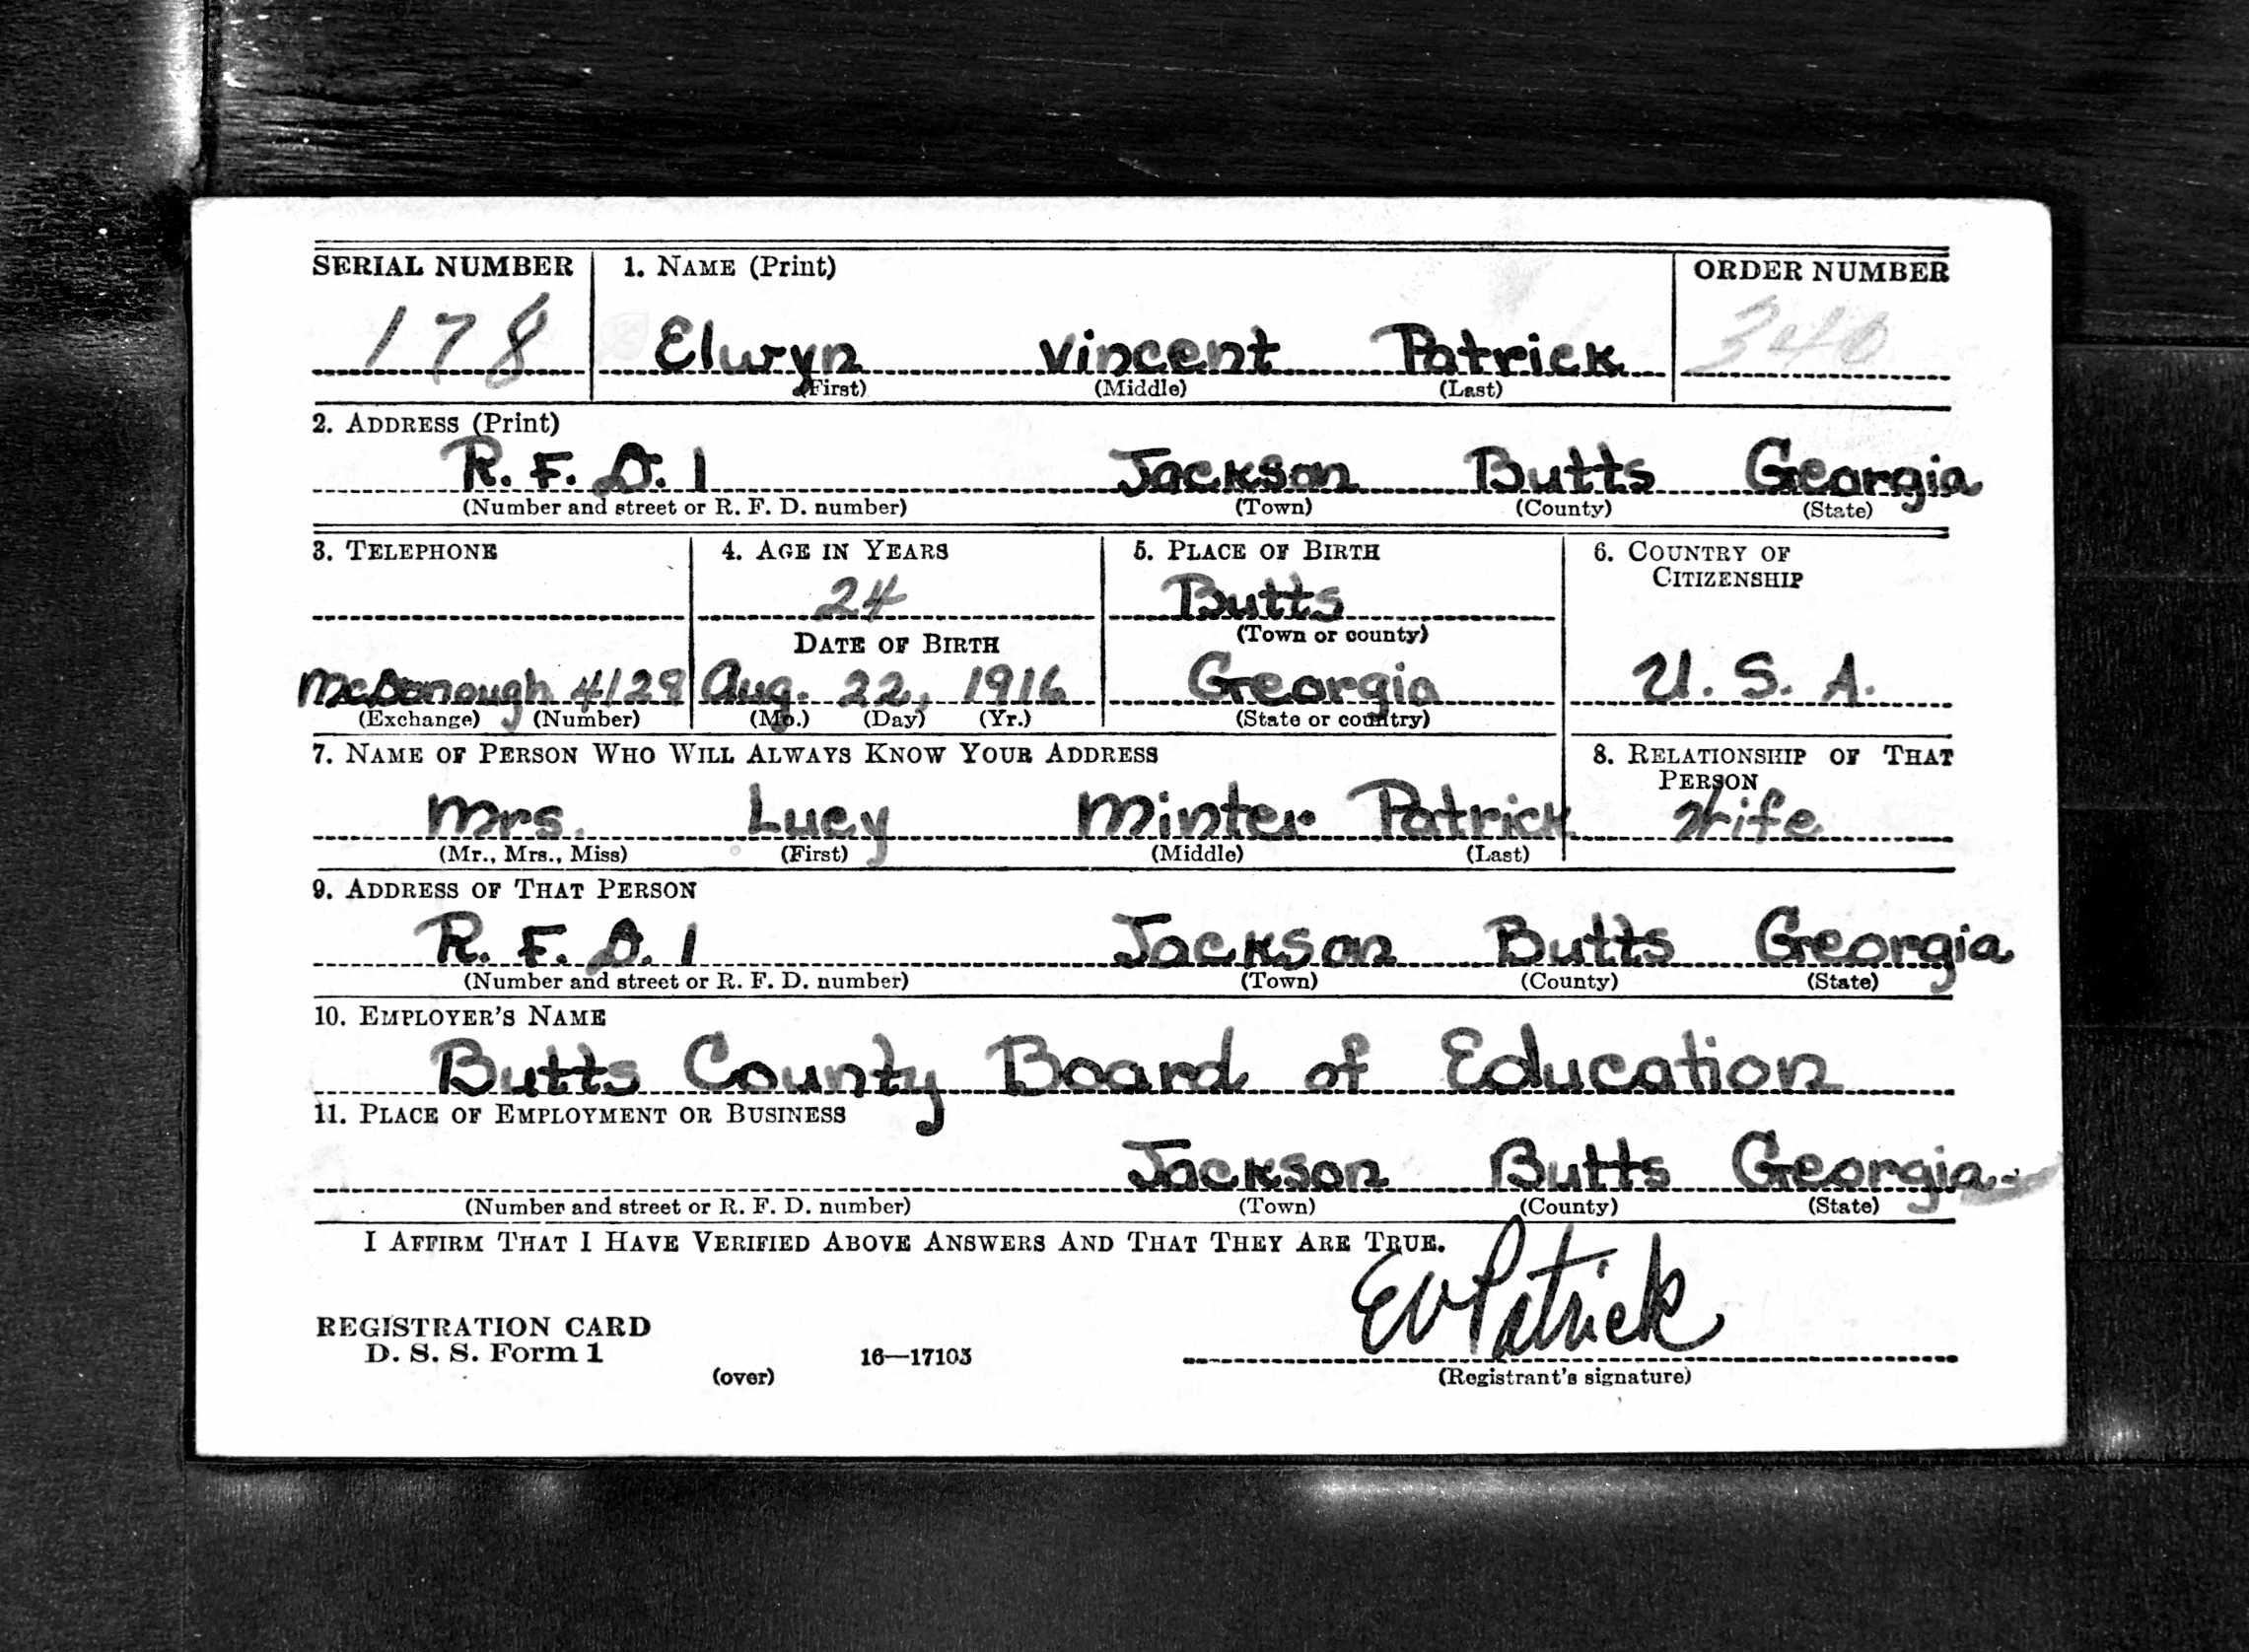 SERIAL NUMBER 1. NAME (Print) ORDER NUMBER
178 Elwyn Vincent Patrick 340
(First) (Middle) (Last)
2. ADDRESS (Print)
R. F. D. 1 Jackson Butts Georgia
(Number and street or R. F. D. number) (Town) (County) (State)
3. TELEPHONE 4. AGE IN YEARS 5. PLACE OF BIRTH 6. COUNTRY OF
CITIZENSHIP
24 Butts
DATE OF BIRTH (Town or county)
McDonough 4129 Aug. 22, 1916 Georgia U. S. A.
(Exchange) (Number) (Mo.) (Day) (Yr.) (State or country)
7. NAME OF PERSON WHO WILL ALWAYS KNOW YOUR ADDRESS 8. RELATIONSHIP OF THAT
PERSON
Mrs. Lucy Minter Patrick Wife
(Mr., Mrs., Miss) (First) (Middle) (Last)
9. ADDRESS OF THAT PERSON
R. F. D. 1 Jackson Butts Georgia
(Number and street or R. F. D. number) (Town) (County) (State)
10. EMPLOYER'S NAME
Butts County Board of Education
11. PLACE OF EMPLOYMENT OR BUSINESS
Jackson Butts Georgia
(Number and street or R. F. D. number) (Town) (County) (State)
I AFFIRM THAT I HAVE VERIFIED ABOVE ANSWERS AND THAT THEY ARE TRUE.
EVPatrick
REGISTRATION CARD
D. S. S. Form 1 16—17105
(over) (Registrant's signature)